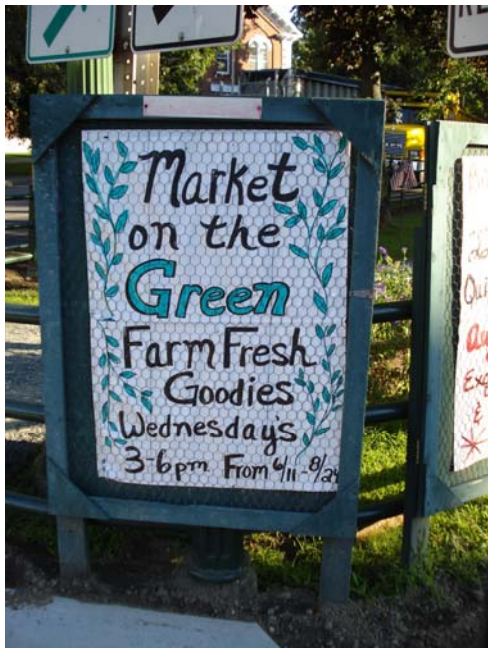 Market
on the
Green
Farm Fresh
Goodies
Wednesday's
3-6pm From 6/11-8/24
Qui
&